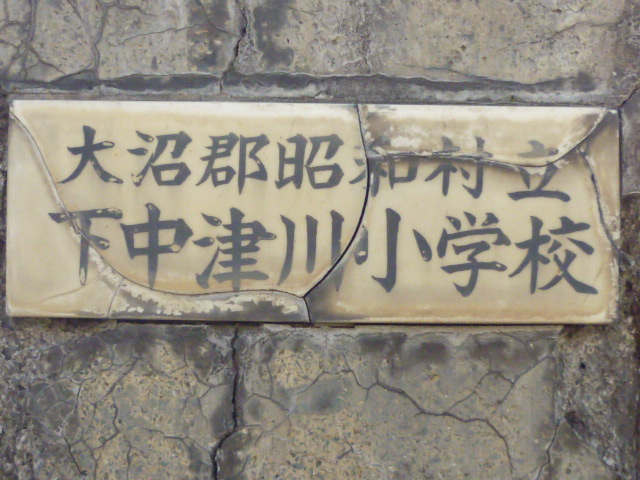 大沼郡昭和村立
下中津川小学校